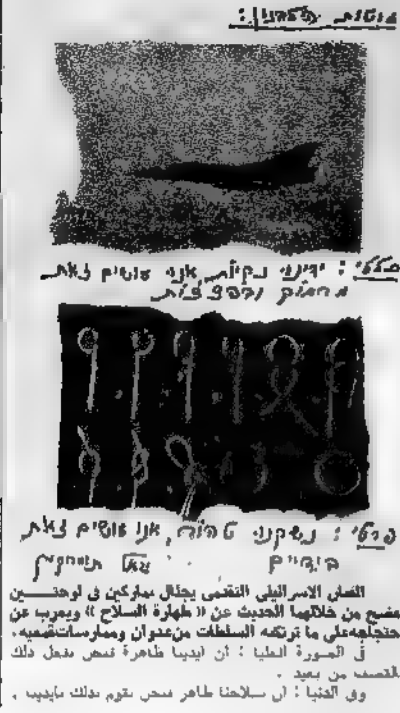 כללי: ידינו נקיות, אנו עושים זאת
מרחוק
פרטי: נשקנו טהור, אנו עושים זאת
בידיים
الفنان الاسرائيلي التقدمي يجئال تماركين في لوحتـــــين
من خلالهما الحديث عن « طهارة السلاح » ويعرب عن
احتجاجه على ما ترتكبه السلطات من عدوان وممارسات قمعية.
في الصورة العليا : ان ايدينا طاهرة فنحن نفعل ذلك
بالقصف من بعيد .
وفي الدنيا : ان سلاحنا طاهر فنحن نقوم بذلك بأيدينا .